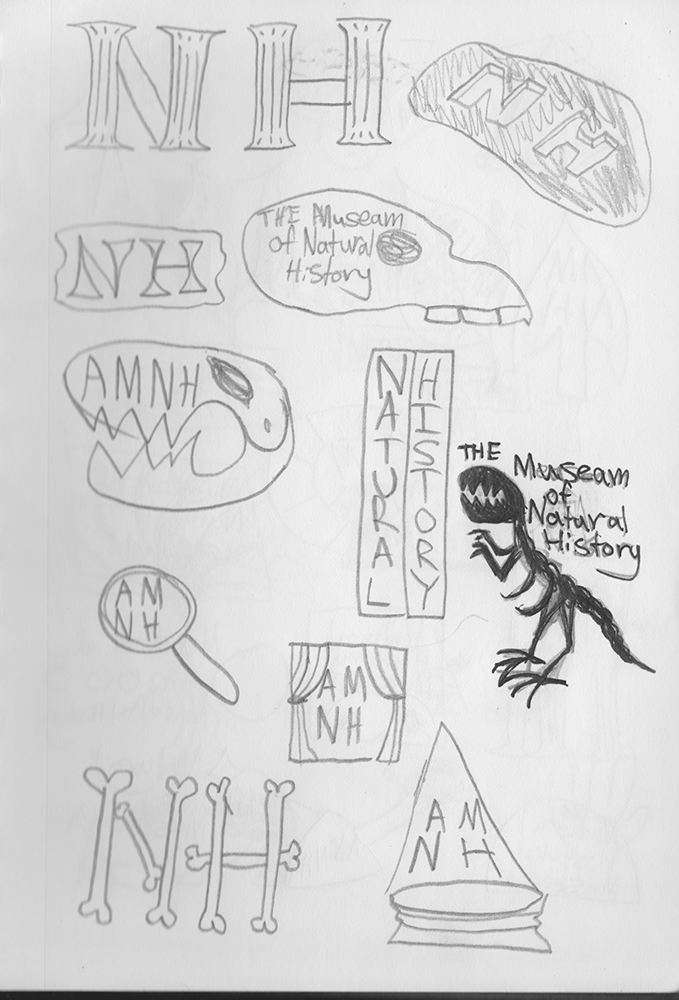 NH
NH
NH
THE Museam
of Natural
History
AMNH
NATURAL
HISTORY
THE Museam
of
Natural
History
AM
NH
AM
NH
NH
AM
NH